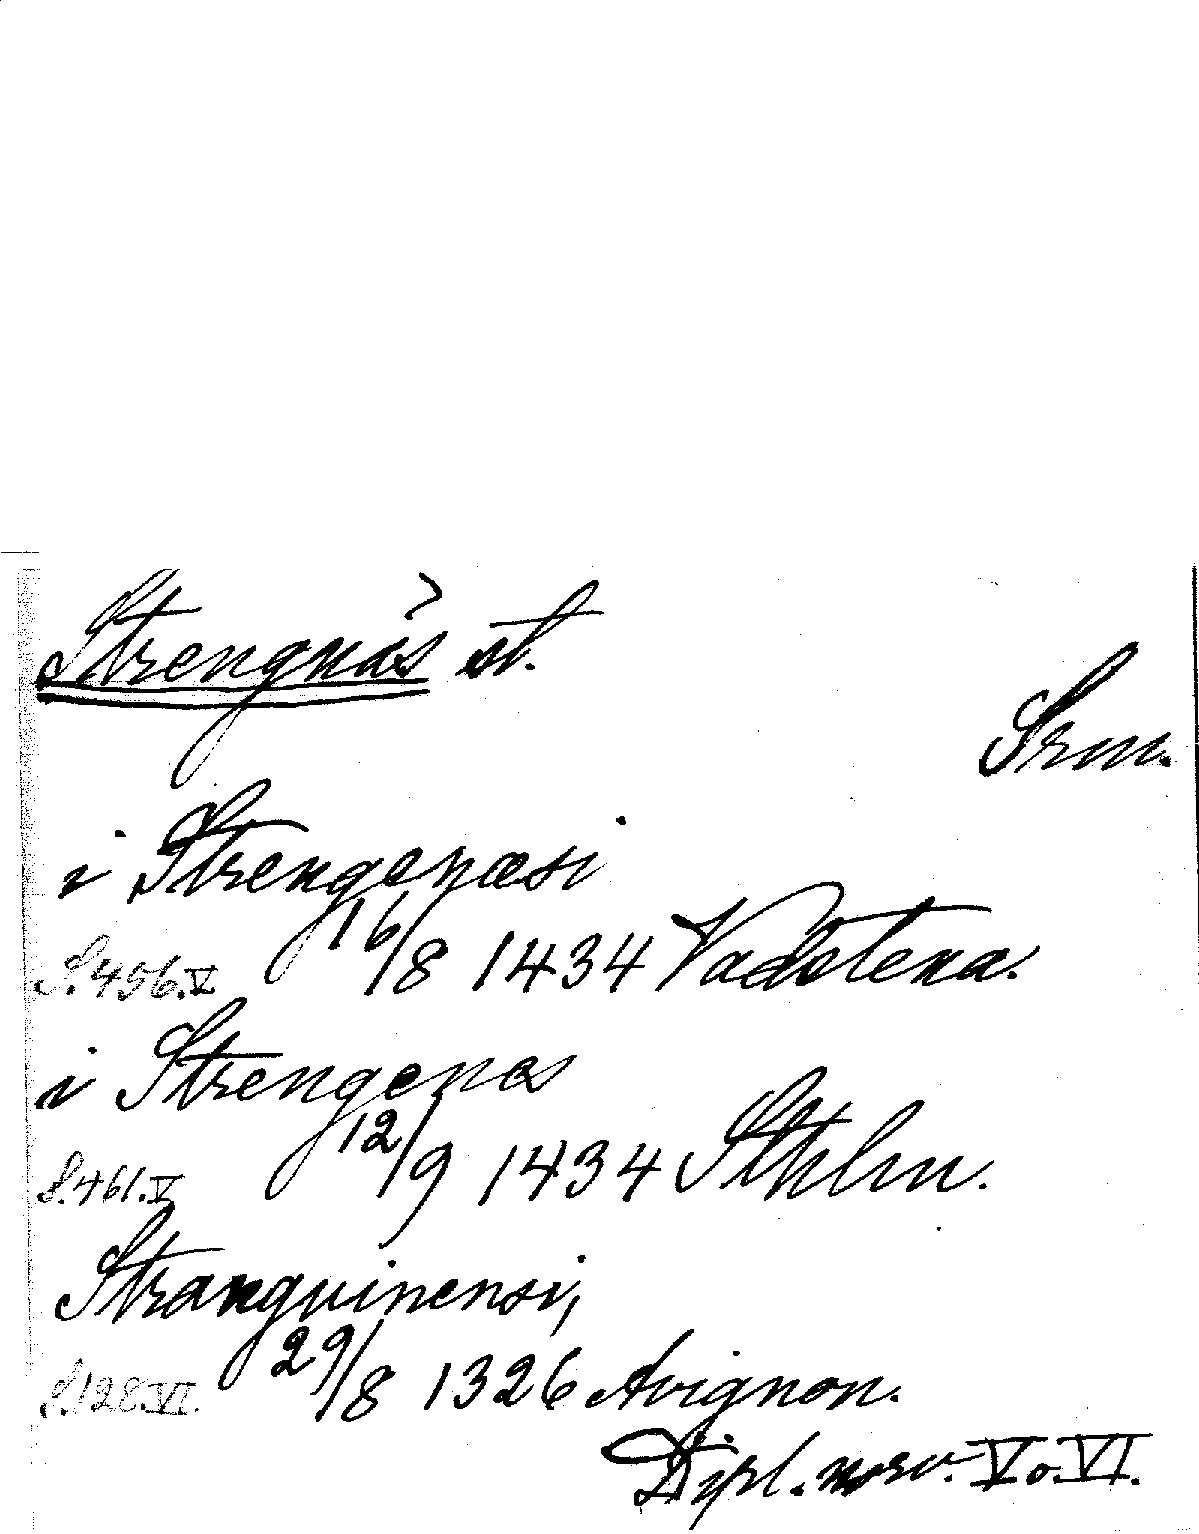 Strengnäs st.
Srm.
i Strengenæsi
S. 456. V 16/8 1434 Vadstena.
i Strengenes
S. 461. V 12/9 1434 Sthlm.
Stranguinensi,
S. 128. VI. 29/8 1326 Avignon.
Dipl. norv. V o. VI.